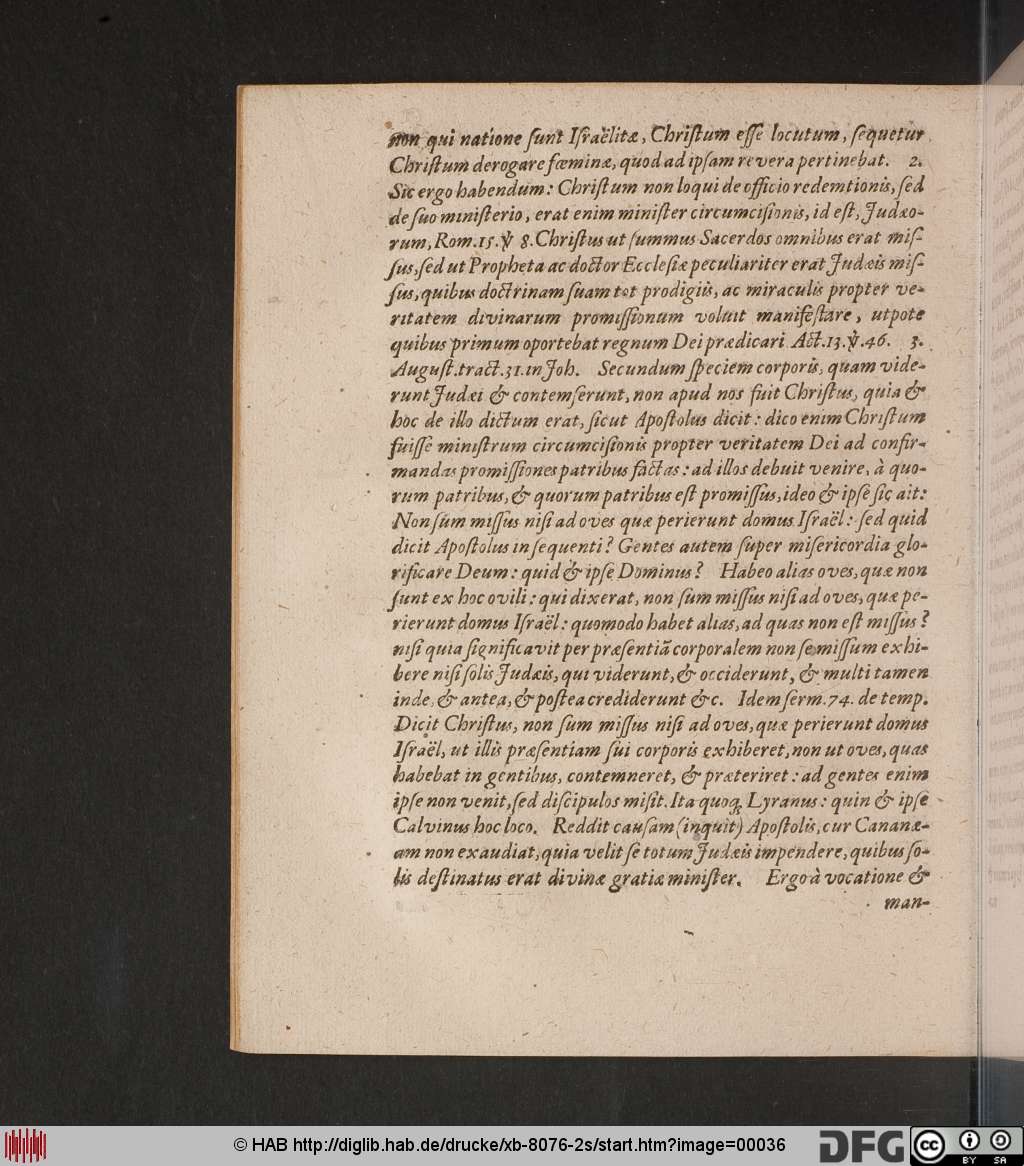 non qui natione ſunt Iſraëlitæ, Chriſtum eſſe locutum, ſequetur
Chriſtum derogare fœminæ, quod ad ipſam revera pertinebat. 2.
Sic ergo habendum: Chriſtum non loqui de officio redemtionis, ſed
de ſuo miniſterio, erat enim miniſter circumciſionis, id eſt, Judæo-
rum, Rom. 15. ꝟ 8. Chriſtus ut ſummus Sacerdos omnibus erat miſ-
ſus, ſed ut Propheta ac doctor Eccleſiæ peculiariter erat Judæis miſ-
ſus, quibus doctrinam ſuam tot prodigiis, ac miraculis propter ve-
ritatem divinarum promiſſionum voluit manifeſtare, utpote
quibus primum oportebat regnum Dei prædicari Act. 13. ꝟ. 46. 3.
Auguſt. tract. 31. in Joh. Secundum ſpeciem corporis, quam vide-
runt Judæi & contemſerunt, non apud nos fuit Chriſtus, quia &
hoc de illo dictum erat, ſicut Apoſtolus dicit: dico enim Chriſtum
fuiſſe miniſtrum circumciſionis propter veritatem Dei ad confir-
mandas promiſſiones patribus factas: ad illos debuit venire, à quo-
rum patribus, & quorum patribus eſt promiſſus, ideo & ipſe ſic ait:
Non ſum miſſus niſi ad oves quæ perierunt domus Iſraël: ſed quid
dicit Apoſtolus in ſequenti? Gentes autem ſuper miſericordia glo-
rificare Deum: quid & ipſe Dominus? Habeo alias oves, quæ non
ſunt ex hoc ovili: qui dixerat, non ſum miſſus niſi ad oves, quæ pe-
rierunt domus Iſraël: quomodo habet alias, ad quas non eſt miſſus?
niſi quia ſignificavit per præſentiã corporalem non ſe miſſum exhi-
bere niſi ſolis Judæis, qui viderunt, & occiderunt, & multi tamen
inde, & antea, & poſtea crediderunt &c. Idem ſerm. 74. de temp.
Dicit Chriſtus, non ſum miſſus niſi ad oves, quæ perierunt domus
Iſraël, ut illis præſentiam ſui corporis exhiberet, non ut oves, quas
habebat in gentibus, contemneret, & præteriret: ad gentes enim
ipſe non venit, ſed diſcipulos miſit. Ita quoq; Lyranus: quin & ipſe
Calvinus hoc loco. Reddit cauſam (inquit) Apoſtolis, cur Cananæ-
am non exaudiat, quia velit ſe totum Judæis impendere, quibus ſo-
lis deſtinatus erat divinæ gratiæ miniſter. Ergo à vocatione &
man-
© HAB http://diglib.hab.de/drucke/xb-8076-2s/start.htm?image=00036
DFG
cc BY SA